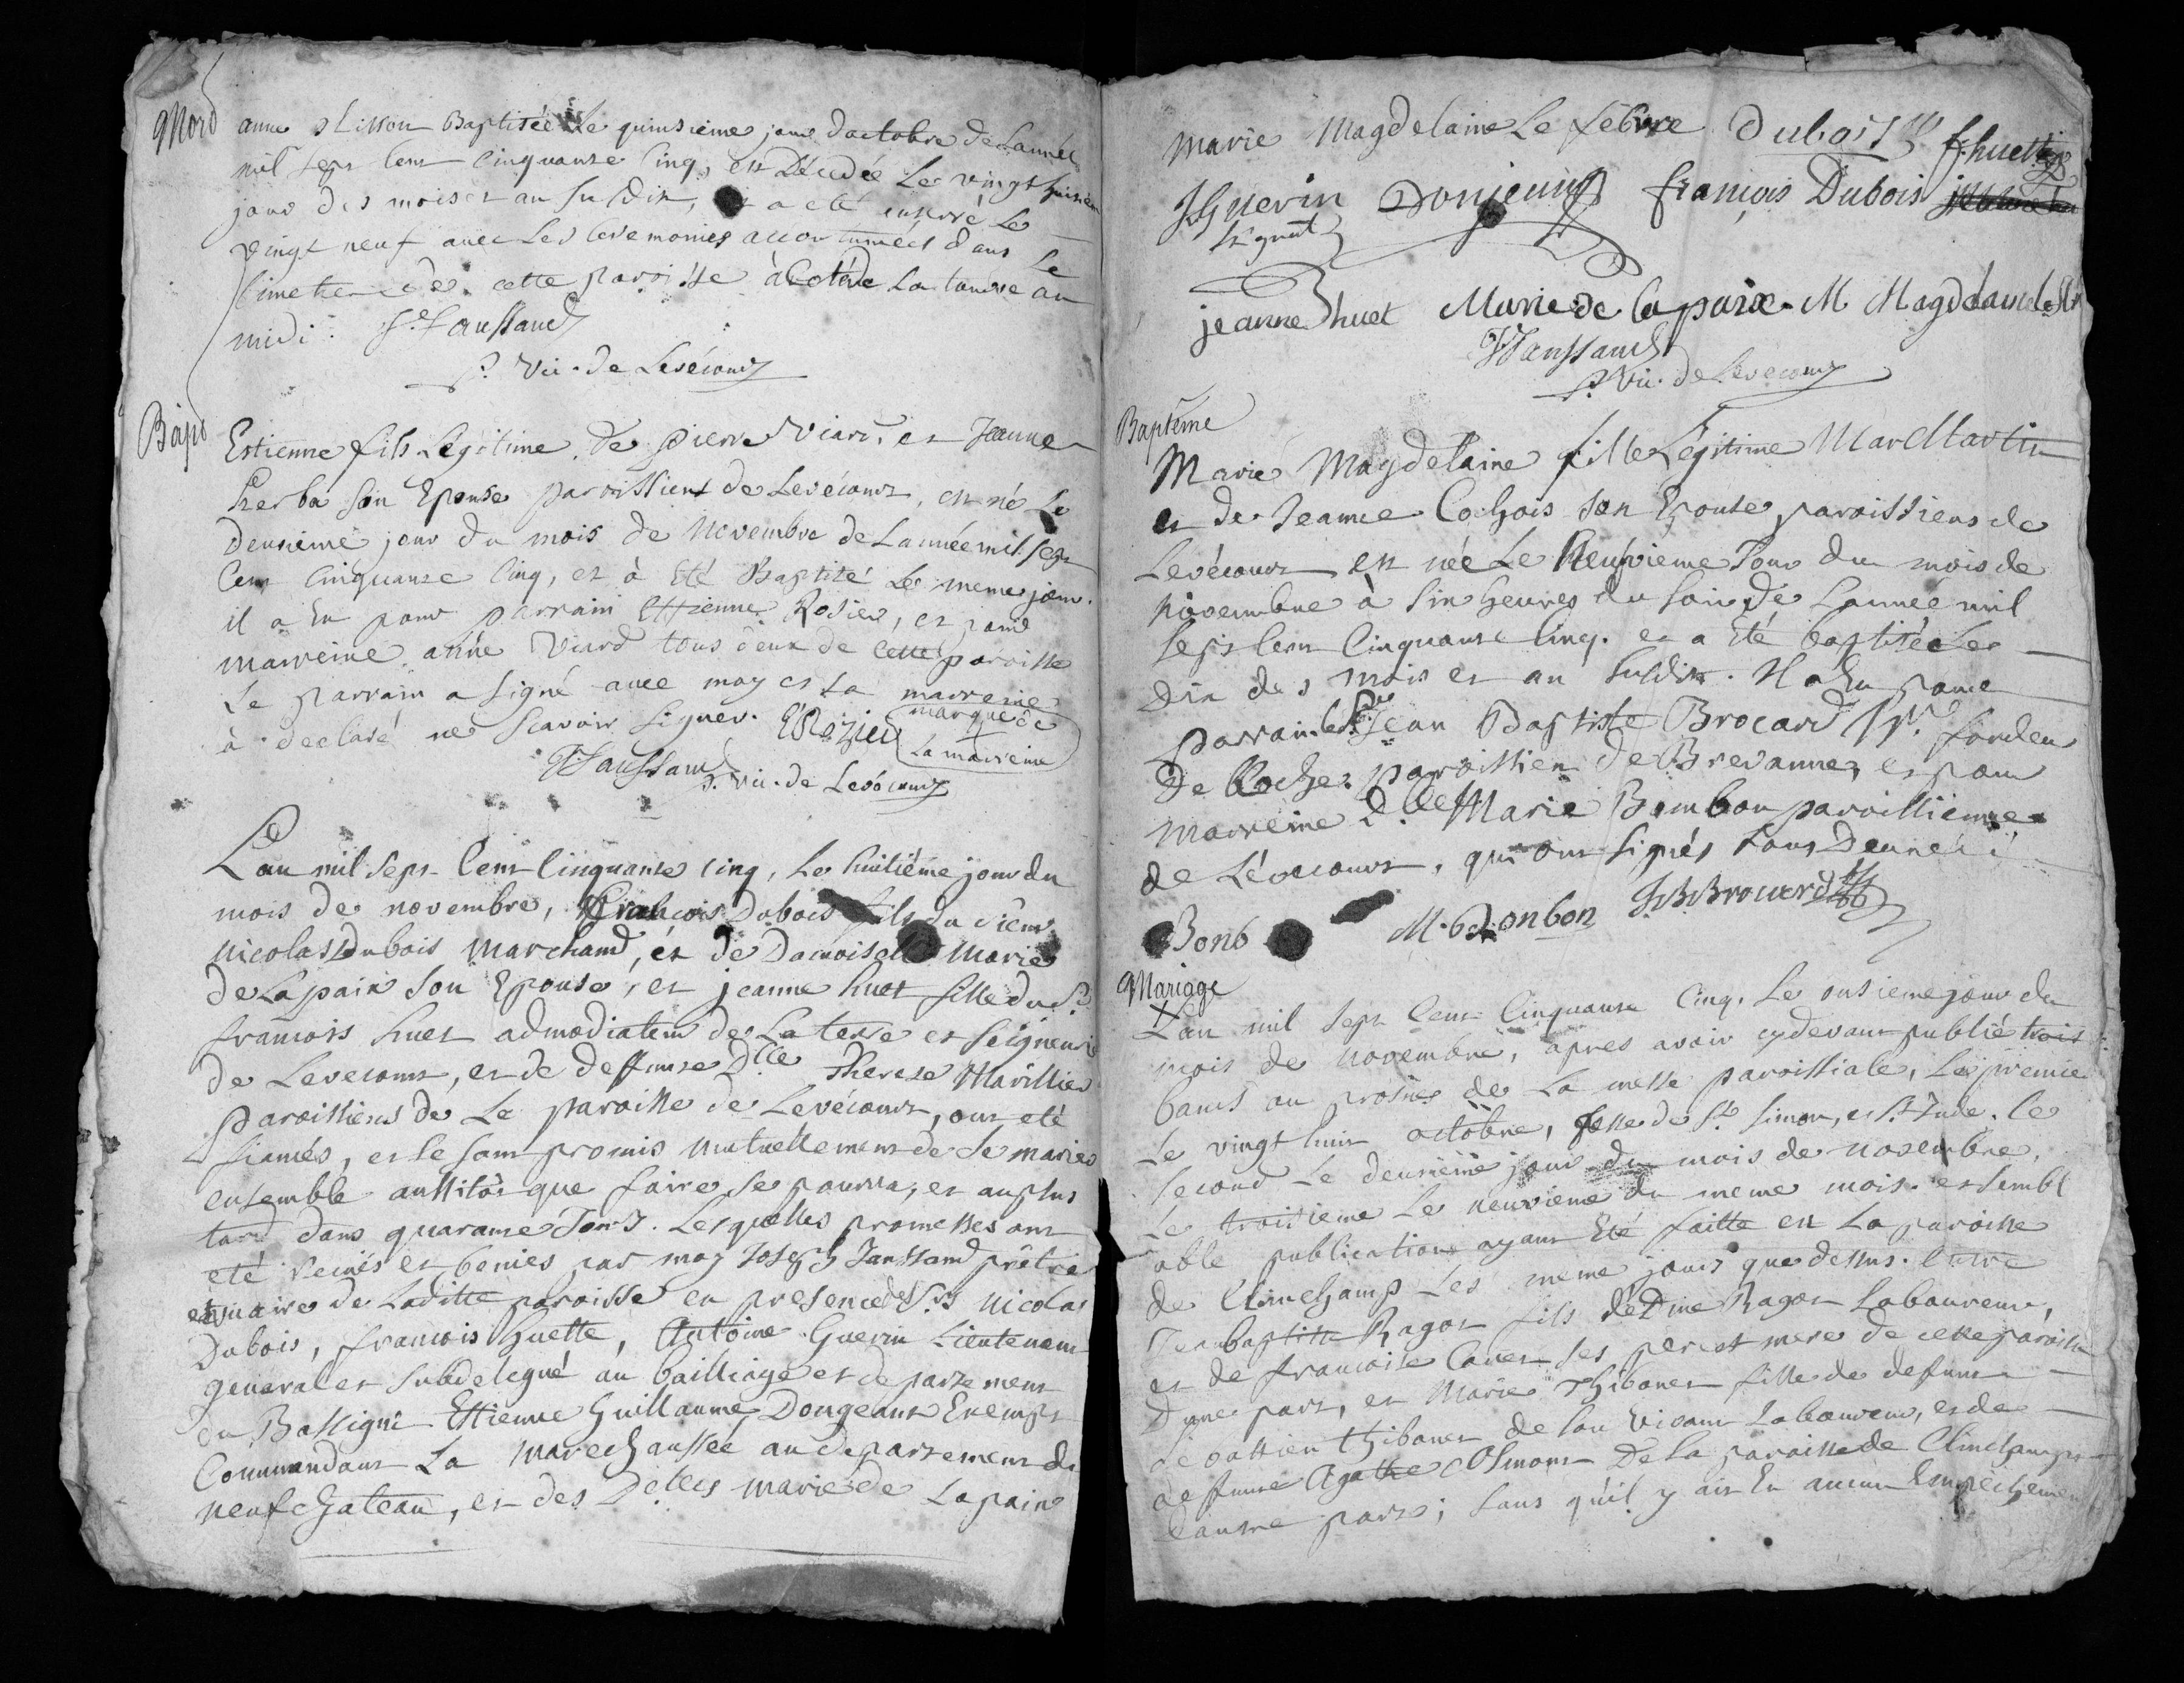 Mord
anne Lisson Baptisée Le quinsième jour d'octobre de Lannée
mil sept Cent Cinquante Cinq, est Décedée Le vingt huisieme
jour des mois et an susdit, et a eté enterré Le
vingt neuf avec Les Ceremonies accoutumées dans Le
Cimetiere de cette paroisse à Coté de La tour au
midi. J. Faussard
P. Vic. de Levécourt
Bapt
Estienne fils Legitime de pierre Viard, et Jeanne
herba son Epouse paroissiens de Levécourt, est né Le
Deusieme jour du mois de Novembre de Lannée mil sept
Cent Cinquante Cinq, et à Eté Baptisé Le meme jour.
il a Eu pour parrain Ettienne Rosier, et pour
marreine anne Viard tous deux de cette paroisse
Le parrain a signé avec moy et La marreine
à declaré ne Scavoir signer. E Rozier marque de
La marreine
J Faussard
P. Vic. de Levécourt
L'an mil sept Cent Cinquante cinq, Le huitiéme jour du
mois de novembre, François Dubois fils du sieur
Nicolas Dubois Marchand, et de Damoiselle Marie
de Lapaix son Epouse, et jeanne huet fille du Sr.
francois huet admodiateur de La terre et Seigneurie
de Levecourt, et de deffunte Dlle Therese Marillier
paroissiens de Le paroisse de Levécourt, ont eté
fiancés, et se sont promis mutuellement de se marier
ensemble aussitôt que faire se pourra, et au plus
tard dans quarante Jours. Lesquelles promesses ont
eté reciües et benies par moy Joseph Faussard prêtre
et vicaire de Laditte paroisse en presence des Srs Nicolas
Dubois, francois huette, Antoine Guerin Lieutenant
general et subdelegué au bailliage et departement
du Bassigni Ettienne Guillaume Dongeaux Exempt
Commandant La Marechaussée au departement de
neufchateau, et des Delles marie de Lapaix
Marie Magdelaine Le febvre Dubois f. huette
J Guerin Donjeux françois Dubois
jeanne huet Marie de la paix M Magdelaine
J Faussard
P. Vic. de Levecourt
Baptême
Marie Magdelaine fille Légitime Marc Martin
et de Jeanne Cochois son Epouse paroissiens de
Levécourt est née Le Neufvieme Jour du mois de
Novembre à six heures du soir de Lannée mil
sept Cent Cinquante Cinq. et a Eté baptisée Le
Dix des mois et an susdit. Il a Eu pour
parrain le Sr Jean Baptiste Brocard
De Roche paroissien de Brevanne, et pour
marreine Dlle Marie Bombon paroissienne
de Lévecourt, qui ont signés tous Deux
Bonb M. Bonbon J. B. Brocard
Mariage
L'an mil sept Cent Cinquante Cinq, Le onsieme jour du
mois de novembre, apres avoir cydevant publié trois
bancs au prosne de La messe paroissiale, Le premier
Le vingt huit octobre, feste de St. Simon, et St. Jude. Le
second Le deusieme jour du mois de novembre.
Le troisieme Le neuvieme du meme mois. et sembl
able publication ayant Eté faitte en La paroisse
de Clinchamp Les meme jours que dessus. Entre
Jean baptiste Ragot fils de Dine Ragot Laboureur,
et de francoise Canet ses pere et mere de cette paroisse
D'une part, et Marie Thibouet fille de defunt
sebastien thibouet de son vivant Laboureur, et de
defunte Agathe Osmont De La paroisse de Clinchamp
D'autre part; sans qu'il y ait Eu aucun Empechement